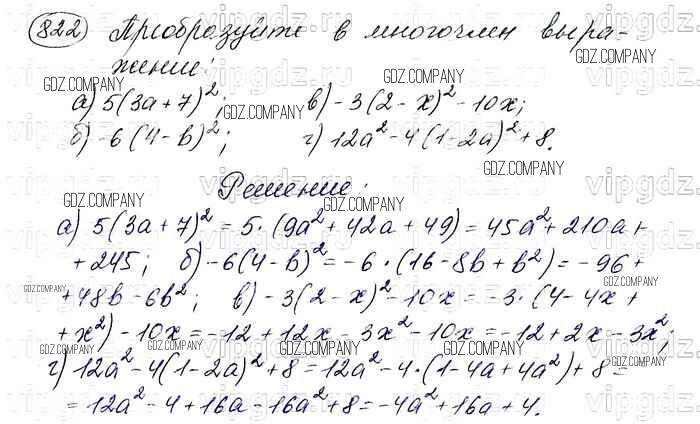 822 Преобразуйте в многочлен выра-
жение:
а) 5(3a+7)²; в) -3(2-x)² -10x;
б) -6(4-b)²; г) 12a² -4(1-2a)² +8.
Решение:
а) 5(3a+7)² = 5·(9a² +42a +49) = 45a² +210a +
+245; б) -6(4-b)² = -6·(16-8b+b²) = -96 +
+48b -6b²; в) -3(2-x)² -10x = -3·(4-4x +
+x²) -10x = -12 +12x -3x² -10x = -12 +2x -3x²;
г) 12a² -4(1-2a)² +8 = 12a² -4·(1-4a+4a²) +8 =
= 12a² -4 +16a -16a² +8 = -4a² +16a +4.